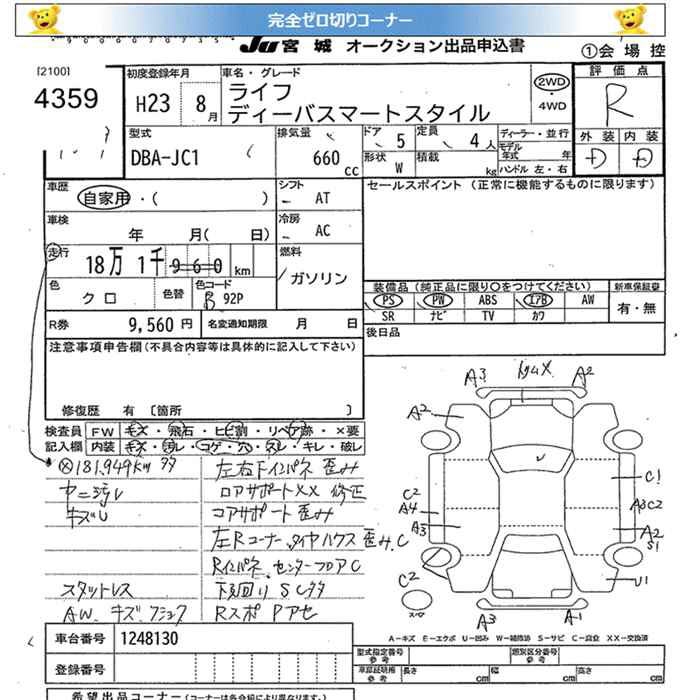 完全ゼロ切りコーナー
JU宮城 オークション出品申込書
①会場控
[2100]
4359
初度登録年月
H23 8月
車名・グレード
ライフ
ディーバスマートスタイル
2WD
・4WD
評価点
R
外装 内装
D D
型式
DBA-JC1
排気量
660 cc
ドア 5
定員 4人
形状 W
積載 kg
ディーラー・並行
モデル年式 年
ハンドル 左・右
車歴
自家用・( )
シフト
AT
セールスポイント (正常に機能するものに限ります)
車検
年 月( 日)
冷房
AC
走行
18万 1千 960 km
燃料
ガソリン
色
クロ
色替
色コード
B 92P
装備品 (純正品に限り○をつけてください)
新車保証書
PS PW ABS エアB AW
SR ナビ TV カワ
有・無
R券 9,560円
名変通知期限 月 日
後日品
注意事項申告欄 (不具合内容等は具体的に記入して下さい)
修復歴 有 〔箇所 〕
検査員 FW キズ・飛石・ヒビ割・リペア跡・×要
記入欄 内装 キズ・汚レ・コゲ・穴・スレ・キレ・破レ
181.949km
ヤニ汚レ
キズ
スタットレス
AW キズ
左右 歪み
コアサポート XX 修正
コアサポート 歪み
左Rコーナー、タイヤハウス 歪み.C
Rインパネ、センターフロアC
下回り S
A3 A2
A2
C1
C2
A4
A3C2
A3
A2
S1
C2
U1
A3 A1
A-キズ E-エクボ U-凹み W-補修跡 S-サビ C-腐食 XX-交換済
車台番号 1248130
登録番号
型式指定番号 参考
類別区分番号 参考
車庫証明用 参考 長さ cm 幅 cm 高さ cm
希望出品コーナー(コーナーは各会組により異なります。)